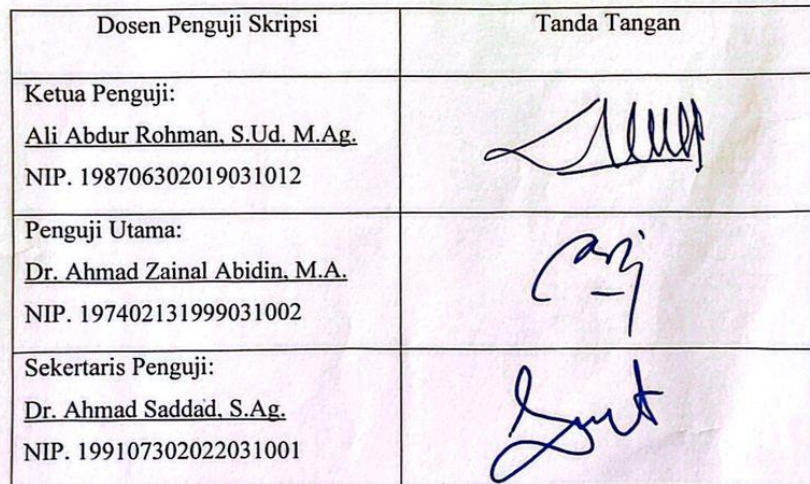 Dosen Penguji Skripsi
Tanda Tangan
Ketua Penguji:
Ali Abdur Rohman, S.Ud. M.Ag.
NIP. 198706302019031012
Penguji Utama:
Dr. Ahmad Zainal Abidin, M.A.
NIP. 197402131999031002
Sekertaris Penguji:
Dr. Ahmad Saddad, S.Ag.
NIP. 199107302022031001